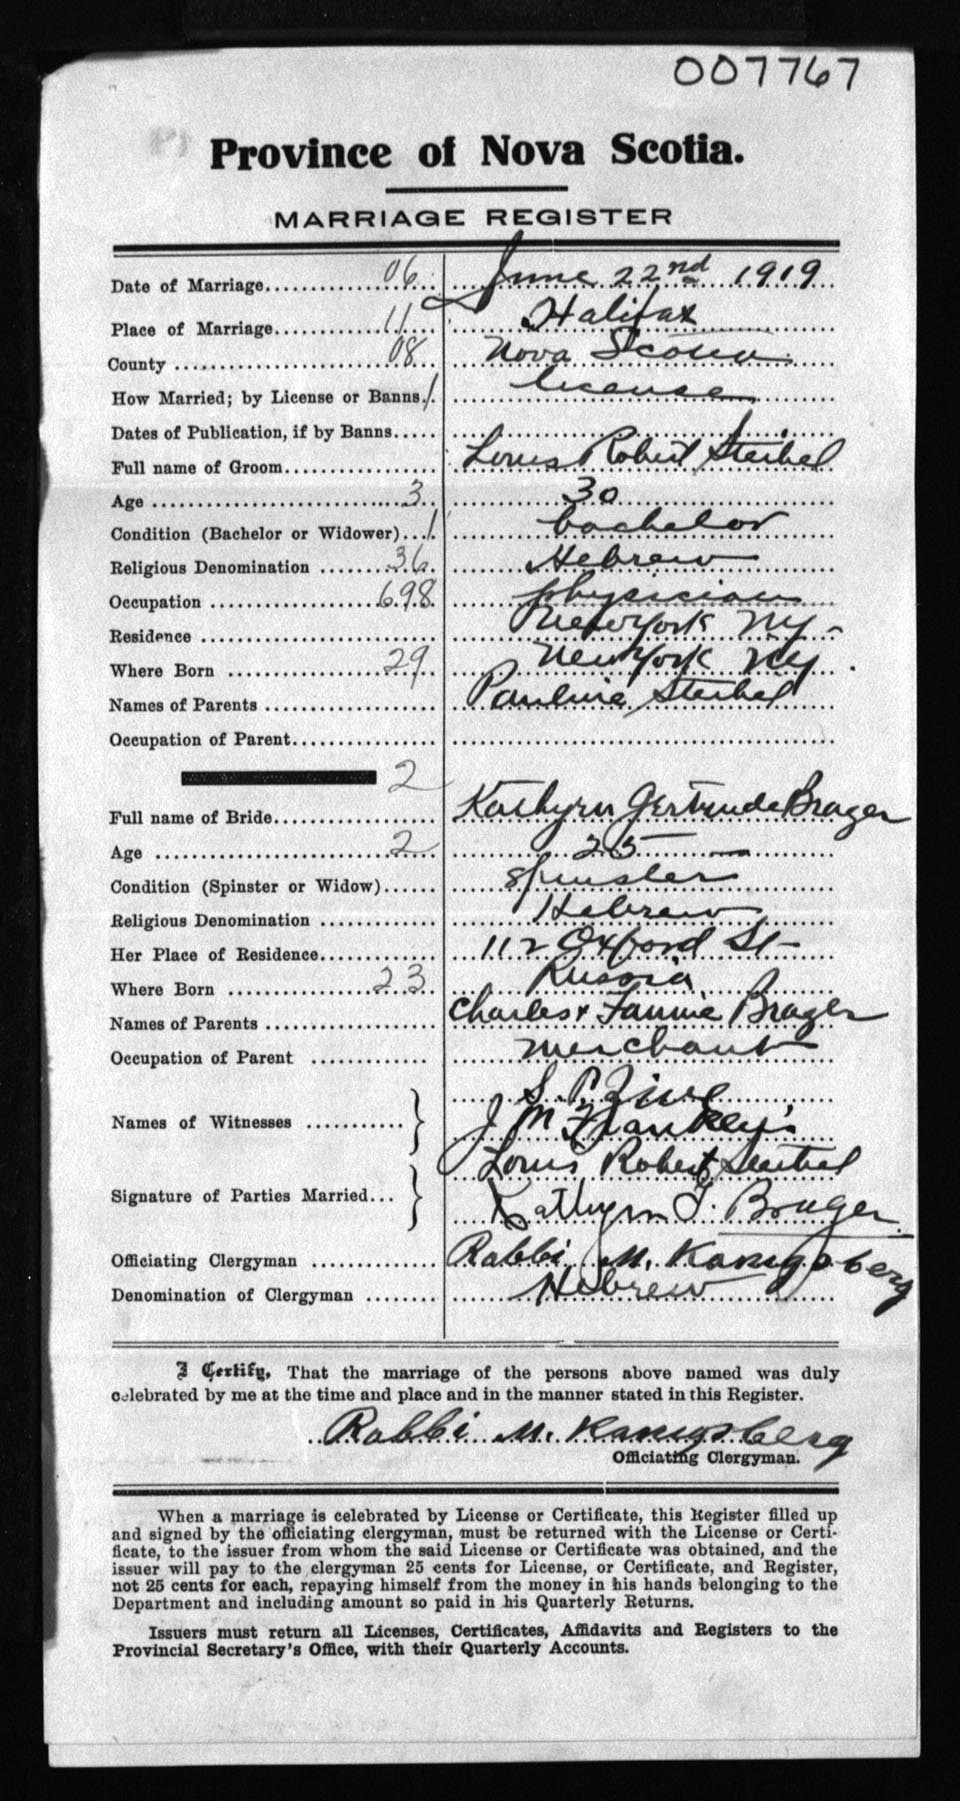 007767
Province of Nova Scotia.
MARRIAGE REGISTER
Date of Marriage 06 June 22nd 1919
Place of Marriage 11 Halifax
County 08 Nova Scotia
How Married; by License or Banns 1 license
Dates of Publication, if by Banns
Full name of Groom Louis Robert Steibel
Age 3 30
Condition (Bachelor or Widower) 1 bachelor
Religious Denomination 36 Hebrew
Occupation 698 physician
Residence New York NY-
Where Born 29 New York NY.
Names of Parents Pauline Steibel
Occupation of Parent
2
Full name of Bride Kathyrn Gertrude Brager
Age 2 25
Condition (Spinster or Widow) Spinster
Religious Denomination Hebrew
Her Place of Residence 112 Oxford St-
Where Born 23 Russia
Names of Parents Charles & Fannie Brager
Occupation of Parent merchant
S. P. Zive
Names of Witnesses
J M Frankley's
Louis Robert Steibel
Signature of Parties Married
Kathyrn G. Brager
Officiating Clergyman Rabbi M. Kanigsberg
Denomination of Clergyman Hebrew
I Certify, That the marriage of the persons above named was duly
celebrated by me at the time and place and in the manner stated in this Register.
Rabbi M. Kanigsberg
Officiating Clergyman.
When a marriage is celebrated by License or Certificate, this Register filled up
and signed by the officiating clergyman, must be returned with the License or Certi-
ficate, to the issuer from whom the said License or Certificate was obtained, and the
issuer will pay to the clergyman 25 cents for License, or Certificate, and Register,
not 25 cents for each, repaying himself from the money in his hands belonging to the
Department and including amount so paid in his Quarterly Returns.
Issuers must return all Licenses, Certificates, Affidavits and Registers to the
Provincial Secretary's Office, with their Quarterly Accounts.